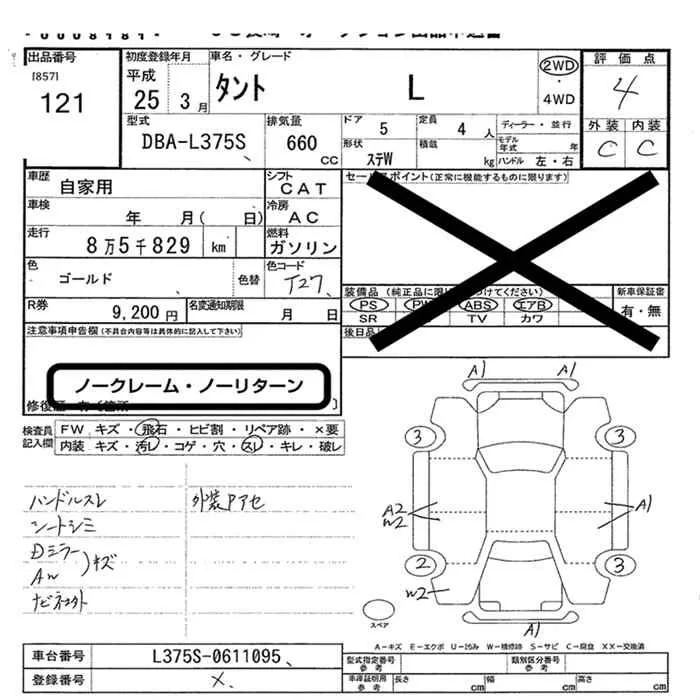 出品番号
[857]
121
初度登録年月
平成
25 3 月
車名・グレード
タント L
2WD
・
4WD
評 価 点
4
外 装 内 装
C C
型式
DBA-L375S
排気量
660
CC
ドア 5
定員 4 人
形状 ステW
積載 kg
ディーラー・並行
モデル年式 年
ハンドル 左・右
車歴
自家用
シフト
CAT
車検
年 月( 日)
冷房
AC
走行
8万5千829 km
燃料
ガソリン
色
ゴールド
色替
色コード
T27
R券
9,200円
名変通知期限
月 日
注意事項申告欄(不具合内容等は具体的に記入して下さい)
ノークレーム・ノーリターン
セールスポイント(正常に機能するものに限ります)
装備品
PS PW ABS エアB
SR TV カワ
新車保証書
有・無
後日品
検査員
記入欄
FW キズ・飛石・ヒビ割・リペア跡・×要
内装 キズ・汚レ・コゲ・穴・スレ・キレ・破レ
ハンドルスレ
シートシミ
Dミラー
AW
キズ
外装Pアセ
A1 A1
3 3
A2
W2
A1
2 3
W2
A1
スペア
A-キズ E-エクボ U-凹み W-補修跡 S-サビ C-腐食 XX-交換済
車台番号
L375S-0611095
登録番号
×
型式指定番号
参考
類別区分番号
参考
車庫証明用
参考
長さ cm
幅 cm
高さ cm